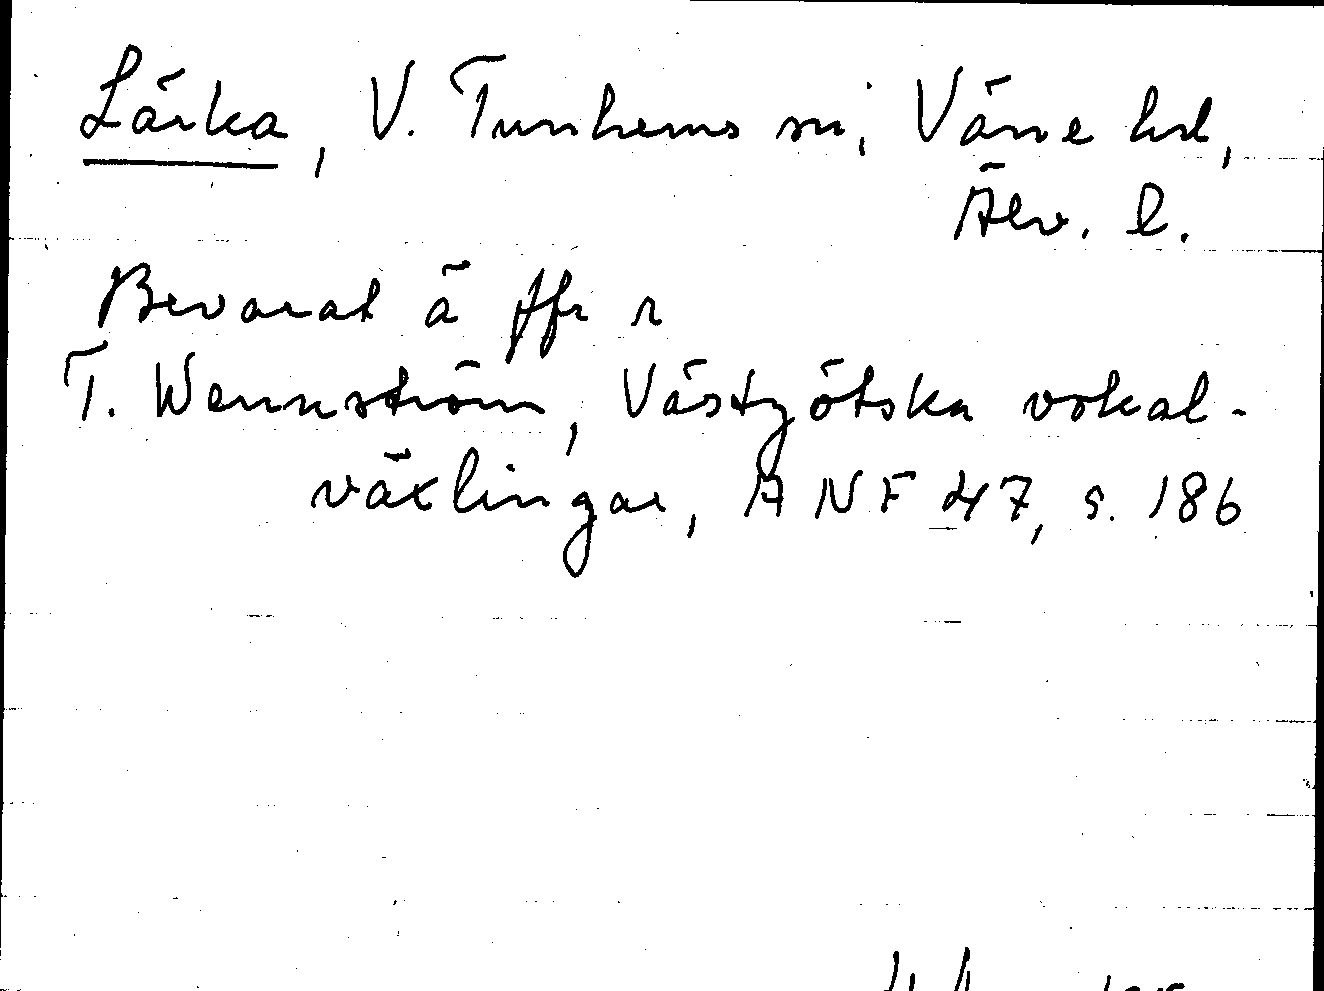 Lärka, V. Tunhems sn, Väne hd,
Älv. l.
Bevarat ä ffr r
T. Wennström, Västgötska vokal-
växlingar, ANF 47, s. 186